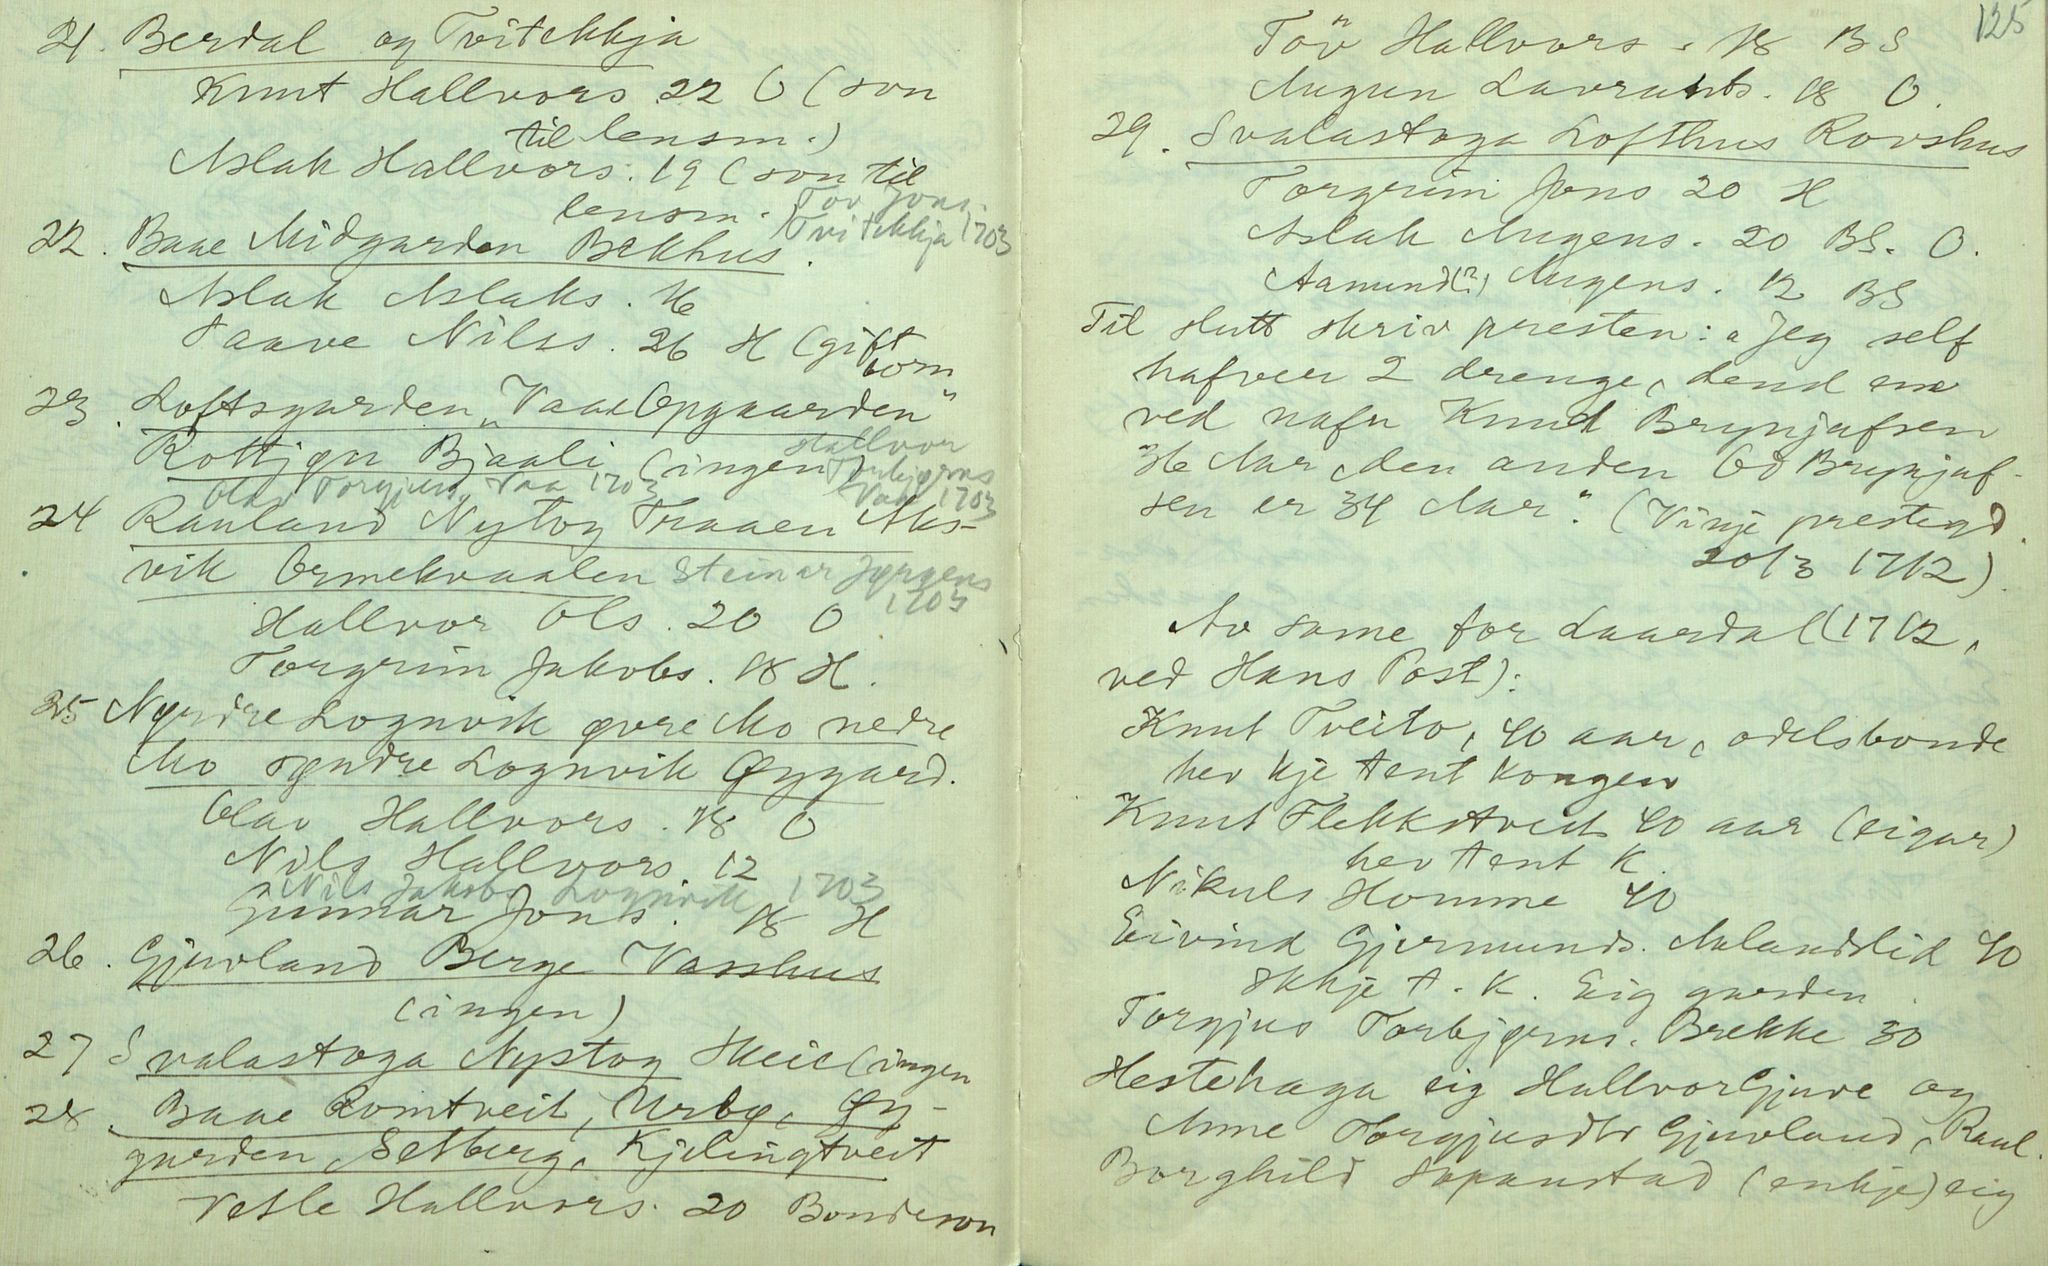 21. Berdal og Tvitekkja
Knut Hallvors. 22 O (son
til lensm.)
Aslak Hallvors. 19 (son til
lensm.
Tov Jons.
Tvitekkja 1703
22. Baae Midgarden Bekhus.
Aslak Aslaks. 16
Saave Nilss. 26 H (gift
som
23. Loftsgarden „Vaae Opgaarden"
Rottjøn Bjaali (ingen)
Hallvor
Torbjørns
Vaa 1703
Olav Torgjuss. Vaa 1703
24 Rauland Nystog Traaen Aks-
vik Ormekvaalen Steinar Jørgens
1703
Hallvor Ols. 20 O
Torgrim Jakobs. 18 H.
25 Nørdre Lognvik øvre Mo nedre
Mo søndre Lognvik Øygard.
Olav Hallvors. 18 O
Nils Hallvors. 12
Nils Jakobs Lognvik 1703
Gunnar Jons. 18 H
26. Gjuvland Berge Vasshus
(ingen)
27 Svalastoga Nystog Skeie (ingen
28. Baae Romtveit, Urbø, Øy-
garden, Selberg, Kjelingtveit
Vetle Hallvors. 20 Bondeson
125
Töv Hallvors. 18 BS
Augun Lavrants. 18 O.
29. Svalastoga Lofthus Rovshus
Torgrim Jons 20 H
Aslak Augens. 20 BS. O.
Aamund(?) Augens. 12 BS
Til slutt skriv presten: „Jeg self
hafver 2 drenge, dend ene
ved nafn Knud Brynjufsen
36 Aar, den anden Od Brynjuf-
sen er 34 Aar". (Vinje prestegd.
20/3 1712)
Av same for Laardal (1712,
ved Hans Post):
Knut Tveito, 40 aar, odelsbonde
hev kje tent kongen
Knut Flekkstveit 40 aar (eigar)
hev tent K.
Nikuls Homme 40
Eivind Gjermunds. Aalandslid 40
Ikkje t. K. Eig garden.
Torgjus Torbjørns. Brekke 30
Hestehaga eig Hallvor Gjuve og
Anne Torgjusdtr Gjuvland, Raul.
Borghild Sopanstad (enkje) eig